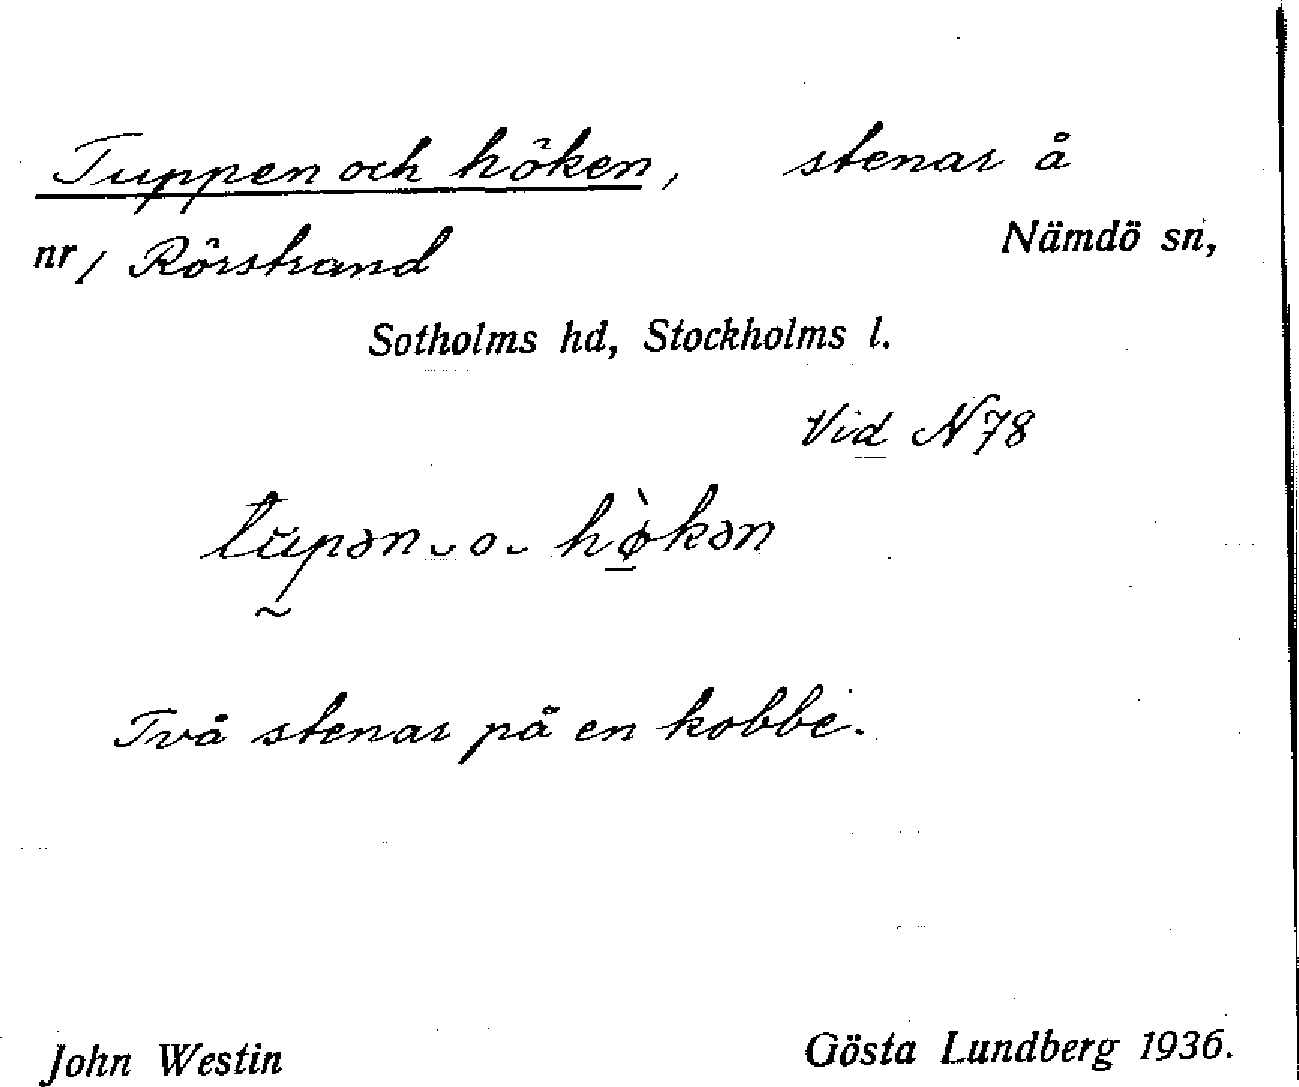 Tuppen och höken, stenar å
nr / Rörstrand Nämdö sn,
Sotholms hd, Stockholms l.
Vid N78
tùpən ‿ o ‿ hø̀kən
Två stenar på en kobbe.
John Westin Gösta Lundberg 1936.